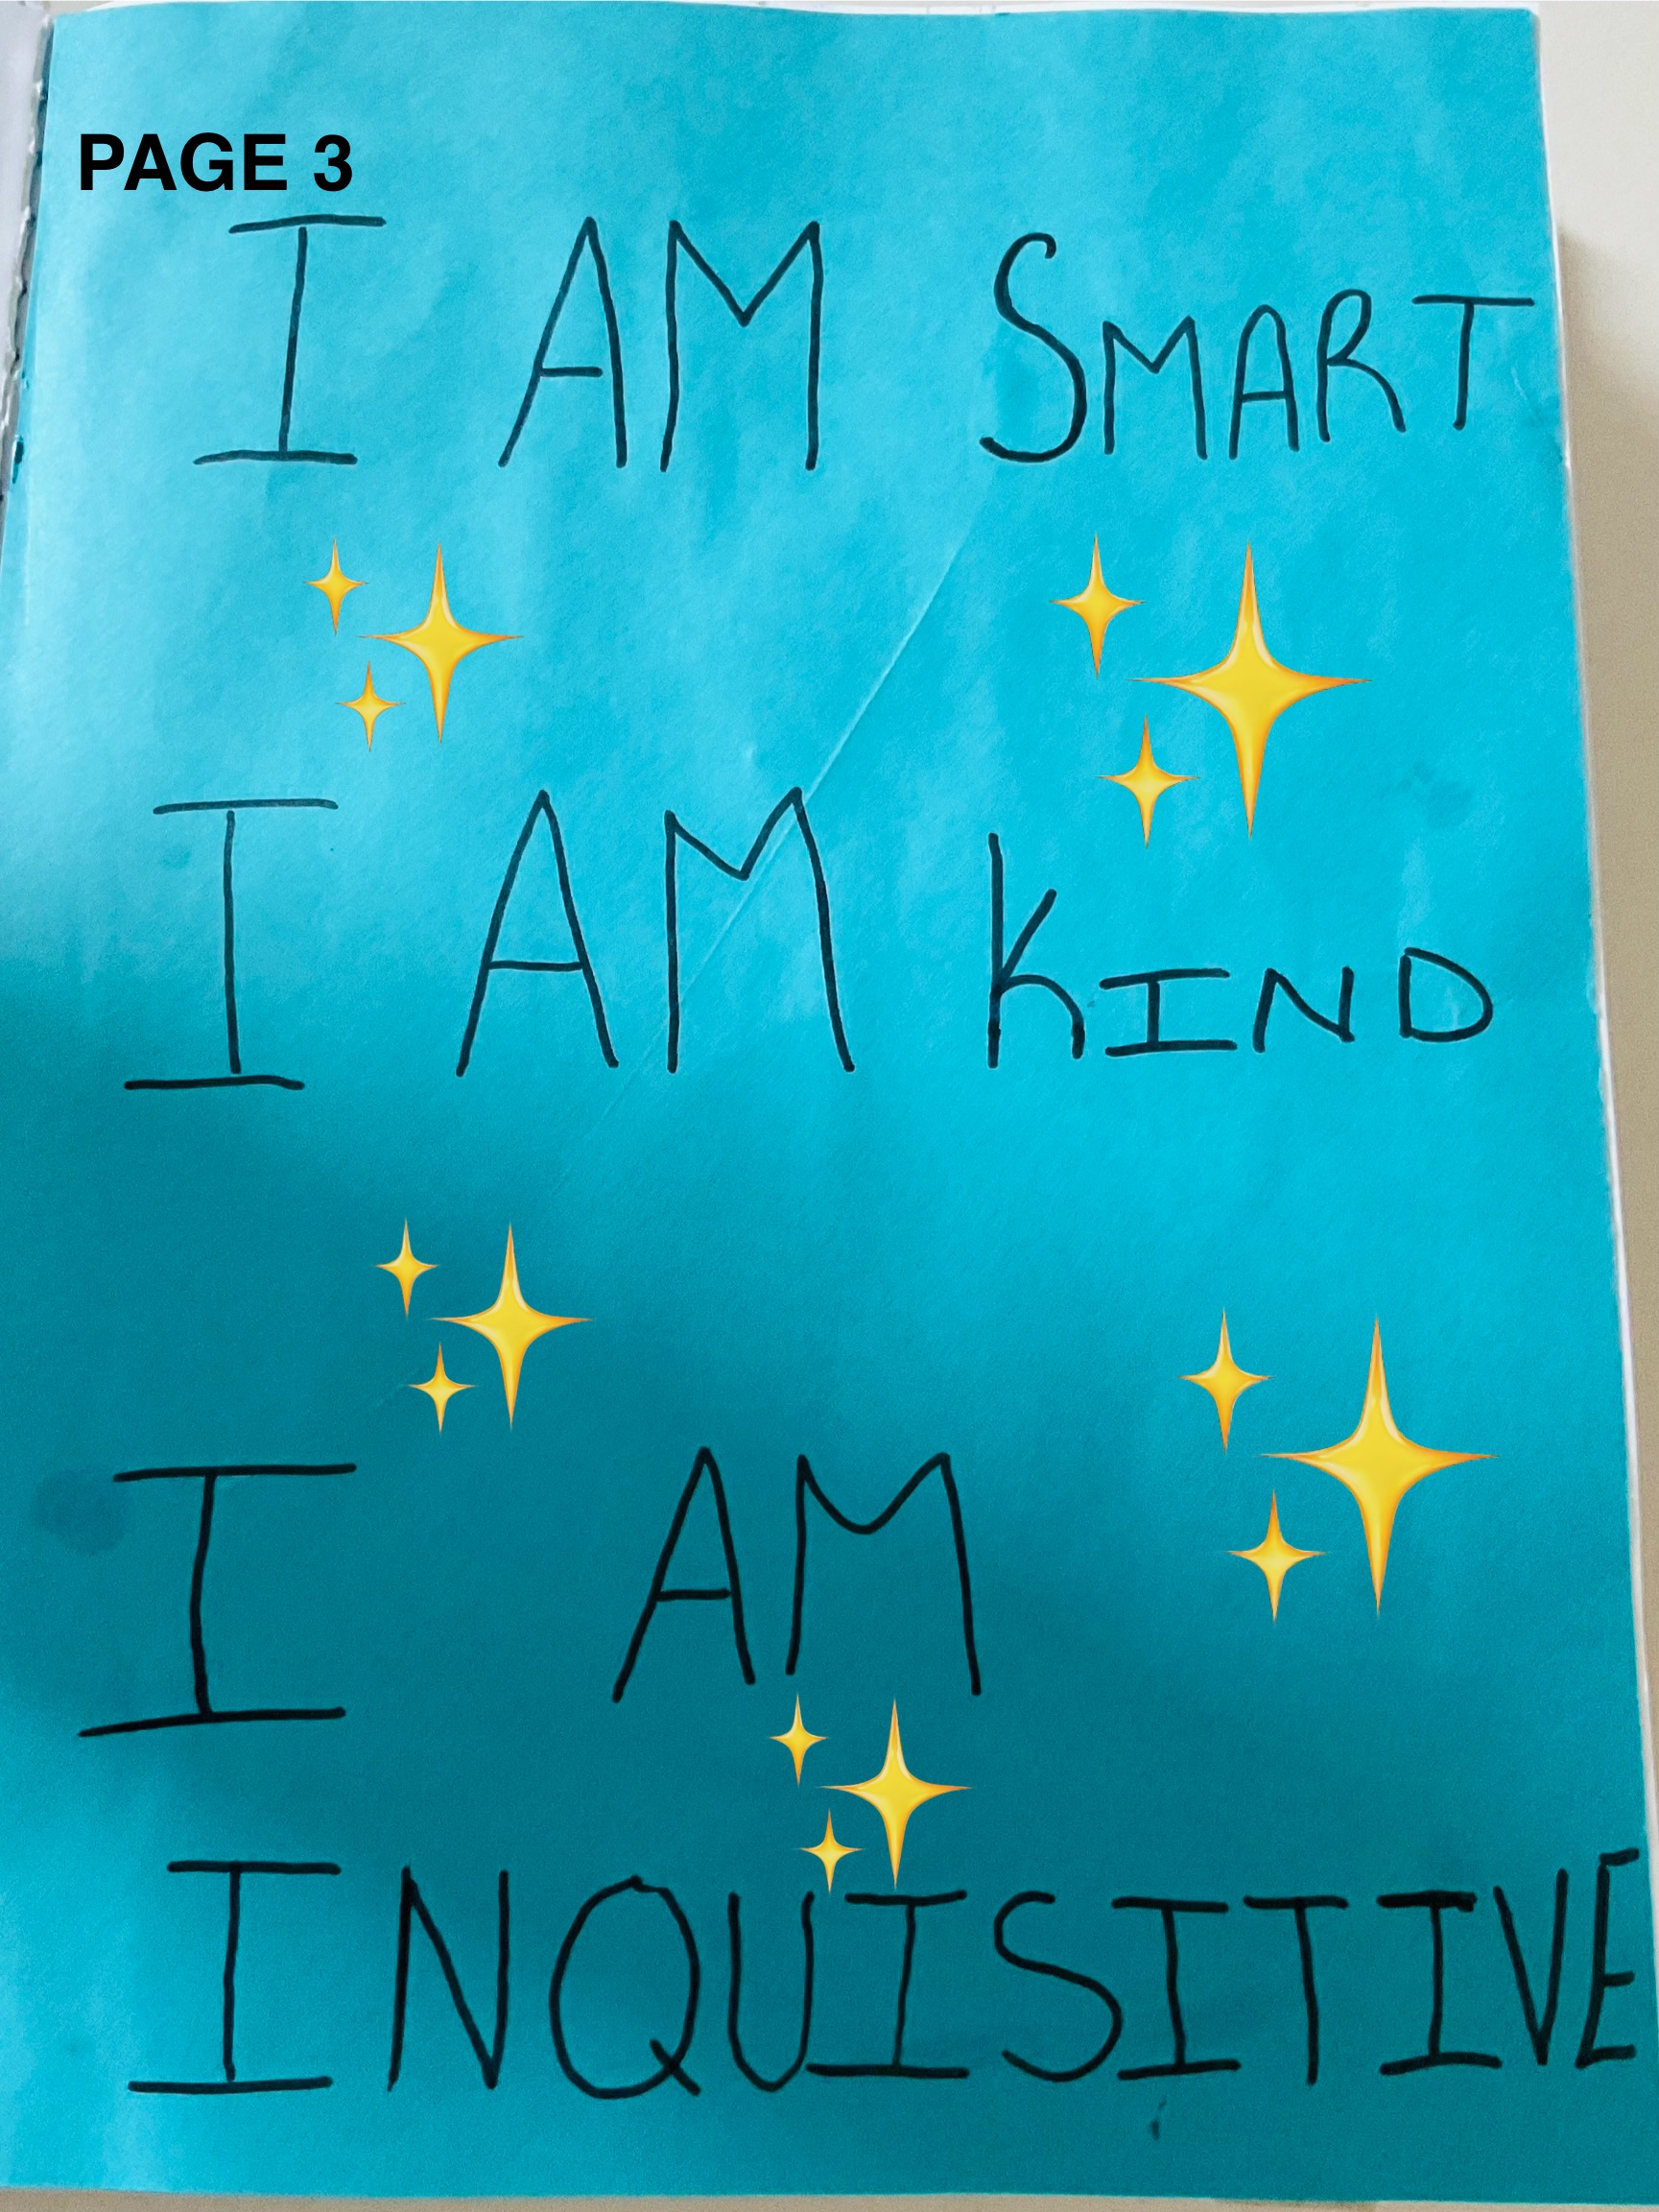 PAGE 3
I AM SMART
I AM KIND
I AM
INQUISITIVE